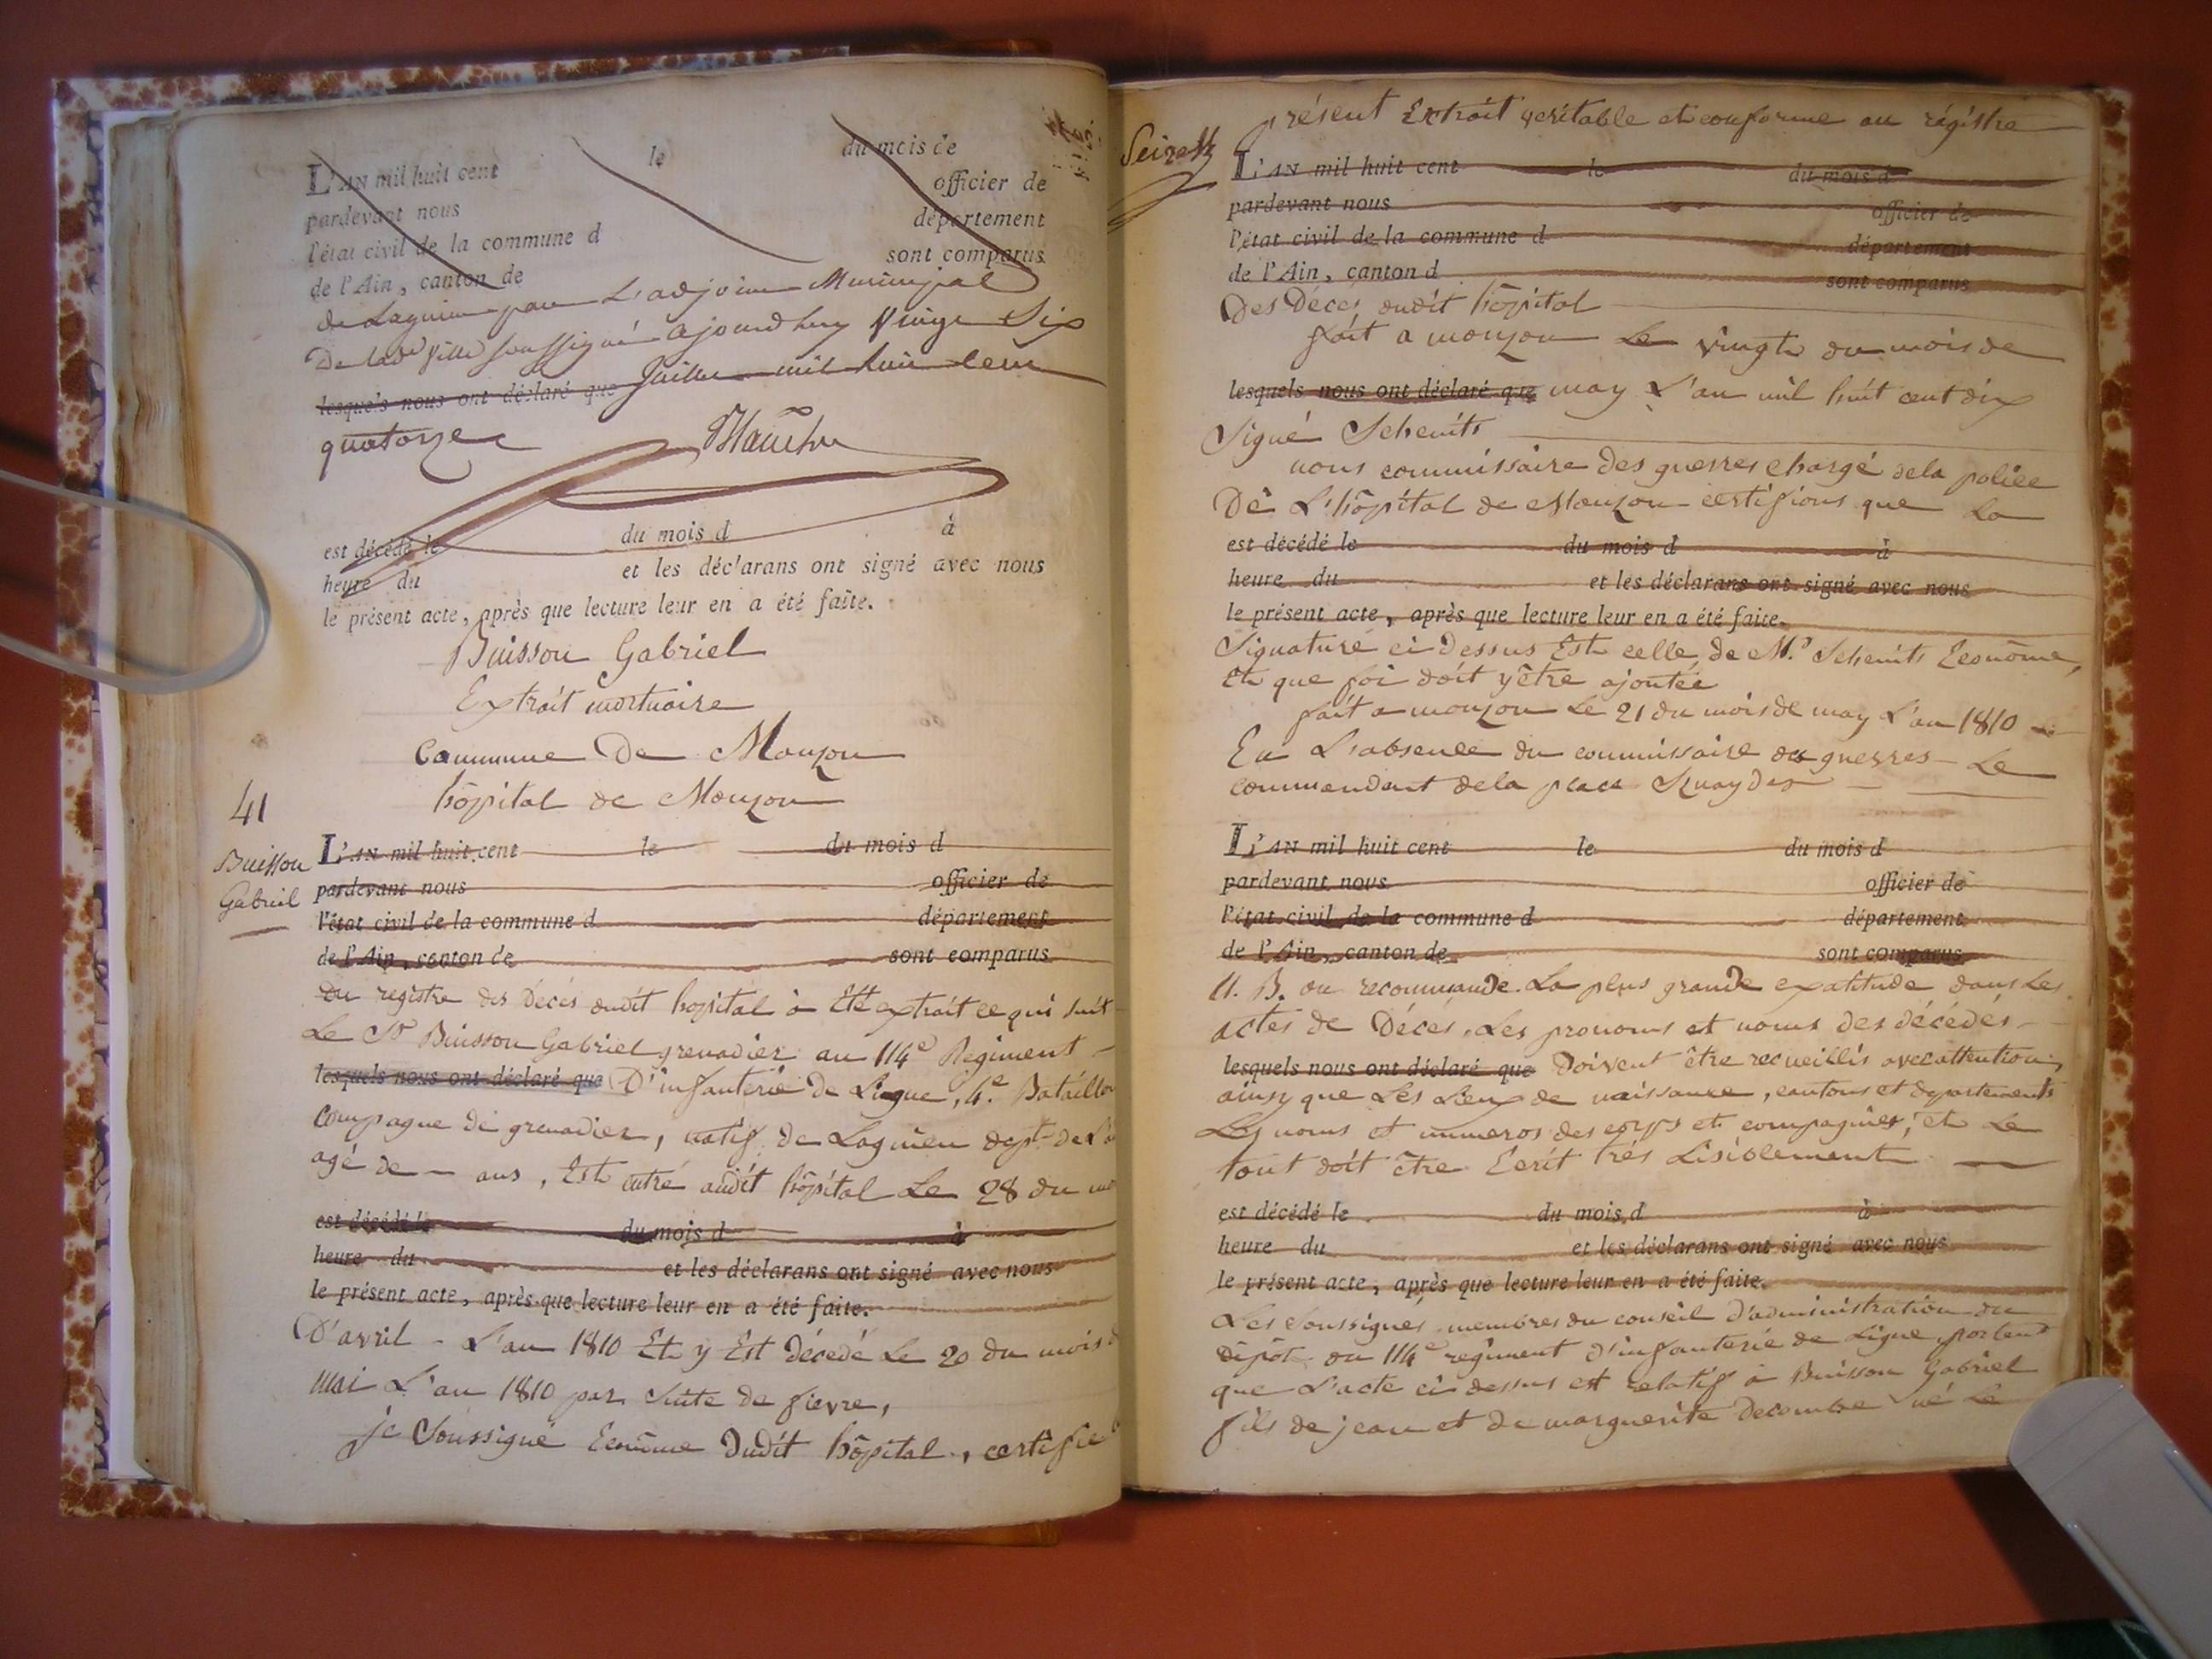 L'AN mil huit cent le du mois de
pardevant nous officier de
l'état civil de la commune d département
de l'Ain, canton de sont comparus
de Lagnieu par L'adjoint Municipal
De lade ville soussigné ajourdhuy vingt Six
lesquels nous ont déclaré que Juillet mil huit cent
quatorze
est décédé le du mois d à
heure du et les déclarans ont signé avec nous
le présent acte, après que lecture leur en a été faite.
Buisson Gabriel
Extrait mortuaire
Commune De Mouzon
hôpital de Mouzon
41
Buisson
Gabriel
L'AN mil huit cent le du mois d
pardevant nous officier de
l'état civil de la commune d département
de l'Ain, canton de sont comparus
Du registre des Décés dudit hopital à Eté extrait ce qui suit
Le Sr Buisson Gabriel grenadier au 114e Regiment
lesquels nous ont déclaré que D'infanterie de Ligne, 4.e Bataillon
compagne de grenadier, natif de Lagnieu dept de
agé de — ans, Est entré audit hôpital Le 28 du
est décédé le du mois d à
heure du et les déclarans ont signé avec nous
le présent acte, après que lecture leur en a été faite.
D'avril - L'an 1810 Et y Est Décedé Le 20 du mois
mai L'an 1810 par suite de fievre,
je Soussigné Econôme Dudit hôpital, certifie
présent Extrait veritable et conforme au régistre
L'AN mil huit cent le du mois d
pardevant nous officier de
l'état civil de la commune d département
de l'Ain, canton d sont comparus
Des Deces dudit hôpital
fait a mouzon Le vingt du mois de
lesquels nous ont déclaré que may L'an mil huit cent dix
Signé Schemits
nous commissaire des guerres chargé dela police
De L'hôpital de Mouzon certifions que La
est décédé le du mois d à
heure du et les déclarans ont signé avec nous
le présent acte, après que lecture leur en a été faite.
Signature ci Dessus Est celle de Mr Schemits Econôme,
Et que foi doit y être ajoutée
fait a mouzon Le 21 du mois de may L'an 1810
En L'absence du commissaire des guerres Le
commendant dela place
L'AN mil huit cent le du mois d
pardevant nous officier de
l'état civil de la commune d département
de l'Ain, canton de sont comparus
N. B. on recommande La plus grande exatitude dans Les
actes de Décés, Les pronoms et noms des décédés
lesquels nous ont déclaré que Doivent être recueillis avec attention,
ainsy que Les Lieux de naissance, cantons et departements
Les noms et numeros des corps et compagnies, et Le
tout doit être Ecrit très Lisiblement
est décédé le du mois d à
heure du et les déclarans ont signé avec nous
le présent acte, après que lecture leur en a été faite.
Les Soussignés membres du conseil d'administration du
dépôt du 114e regiment d'infanterie de Ligne portent
que L'acte ci dessus est relatif à Buisson Gabriel
fils de jean et de marguerite Decombe né Le